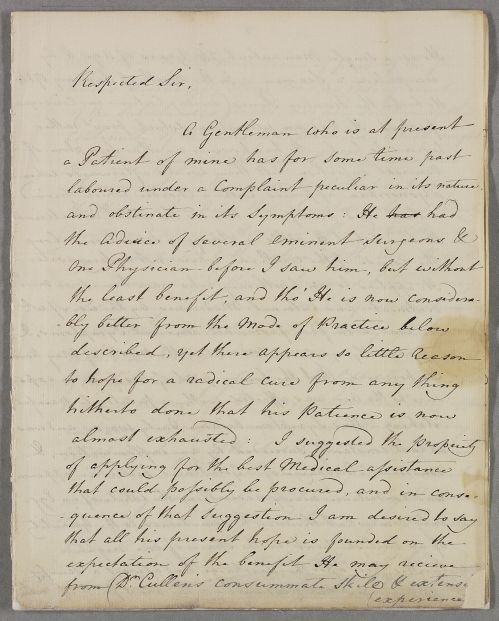 Respected Sir,
A Gentleman who is at present
a Patient of mine has for some time past
laboured under a Complaint peculiar in its nature
and obstinate in its Symptoms: He has had
the Advice of several eminent Surgeons &
One Physician before I saw him, but without
the least benefit, and tho' He is now considera-
bly better from the Mode of Practice below
described, yet there appears so little Reason
to hope for a radical cure from any thing
hitherto done that his Patience is now
almost exhausted: I suggested the propriety
of applying for the best Medical assistance
that could possibly be procured, and in conse-
-quence of that Suggestion I am desired to say
that all his present hope is founded on the
expectation of the benefit He may recieve
from Dr. Cullen's consummate Skill & extensi
experience